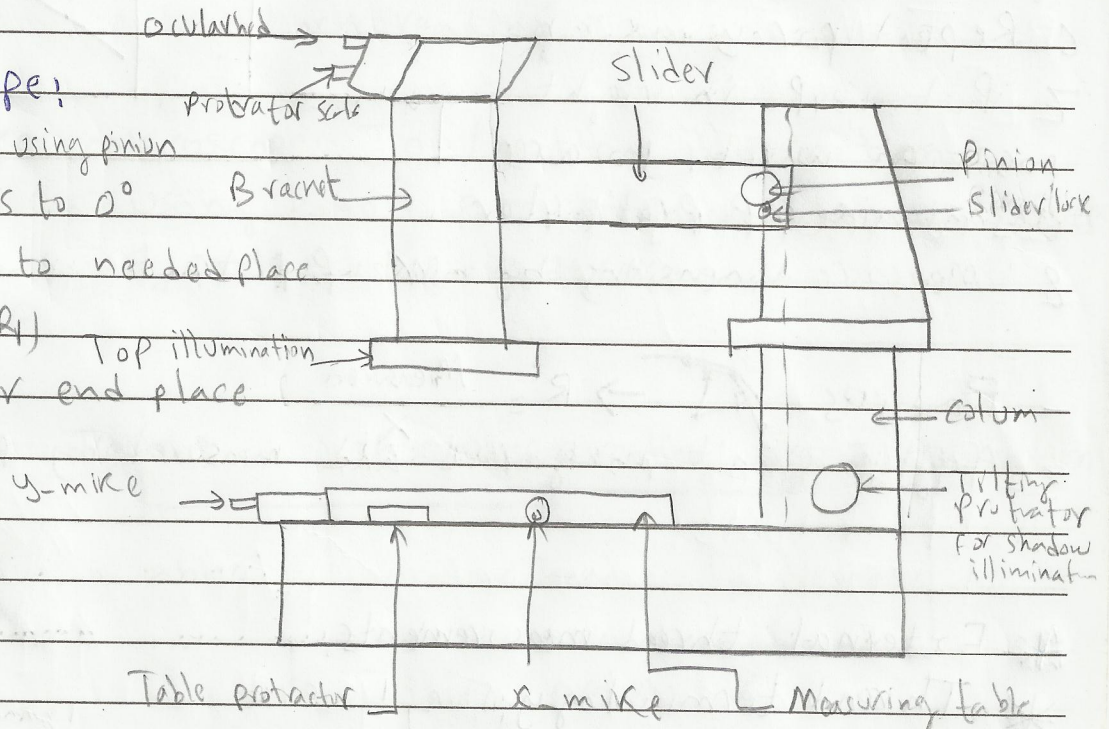 ocularhed
pe:
Protrator scale
Slider
using pinion
Pinion
Bracket
Slider lock
s to 0°
to needed place
R1)
Top illumination
r end place
colum
y-mike
Tilting
Protrator
for shadow
illiminat
Table protractor
x-mike
Measuring table